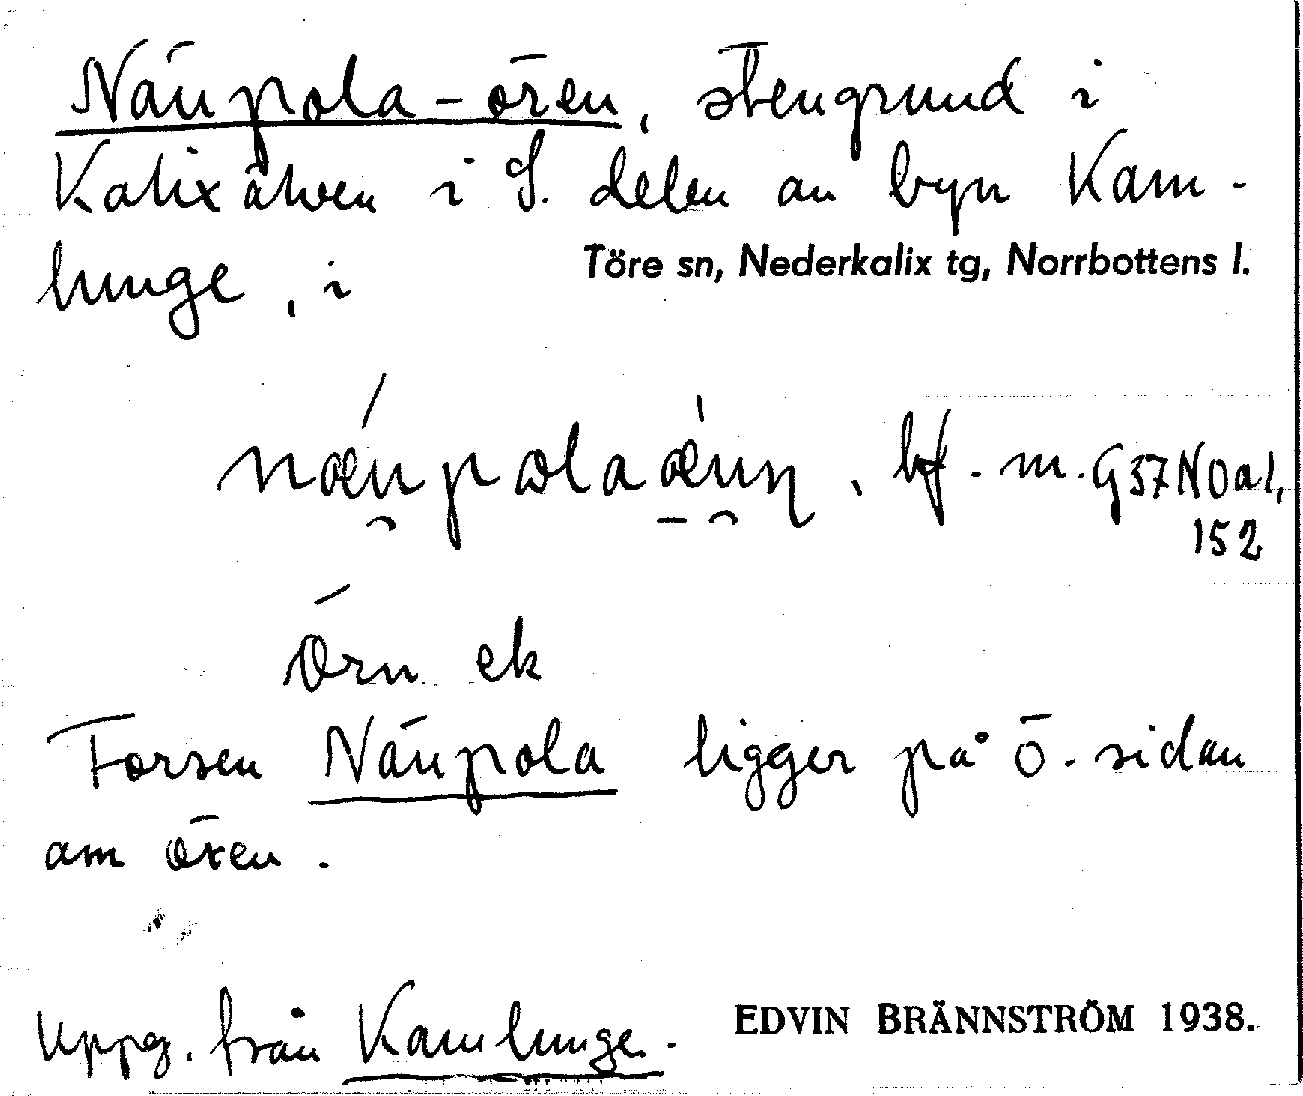 Näupola-ören, stengrund i
Kalixälven i S. delen av byn Kam-
lunge, i Töre sn, Nederkalix tg, Norrbottens l.
bf. m. G 37 NOal,
152
Örn ek
Forsen Näupola ligger på Ö. sidan
om ören.
Uppg. från Kamlunge. EDVIN BRÄNNSTRÖM 1938.